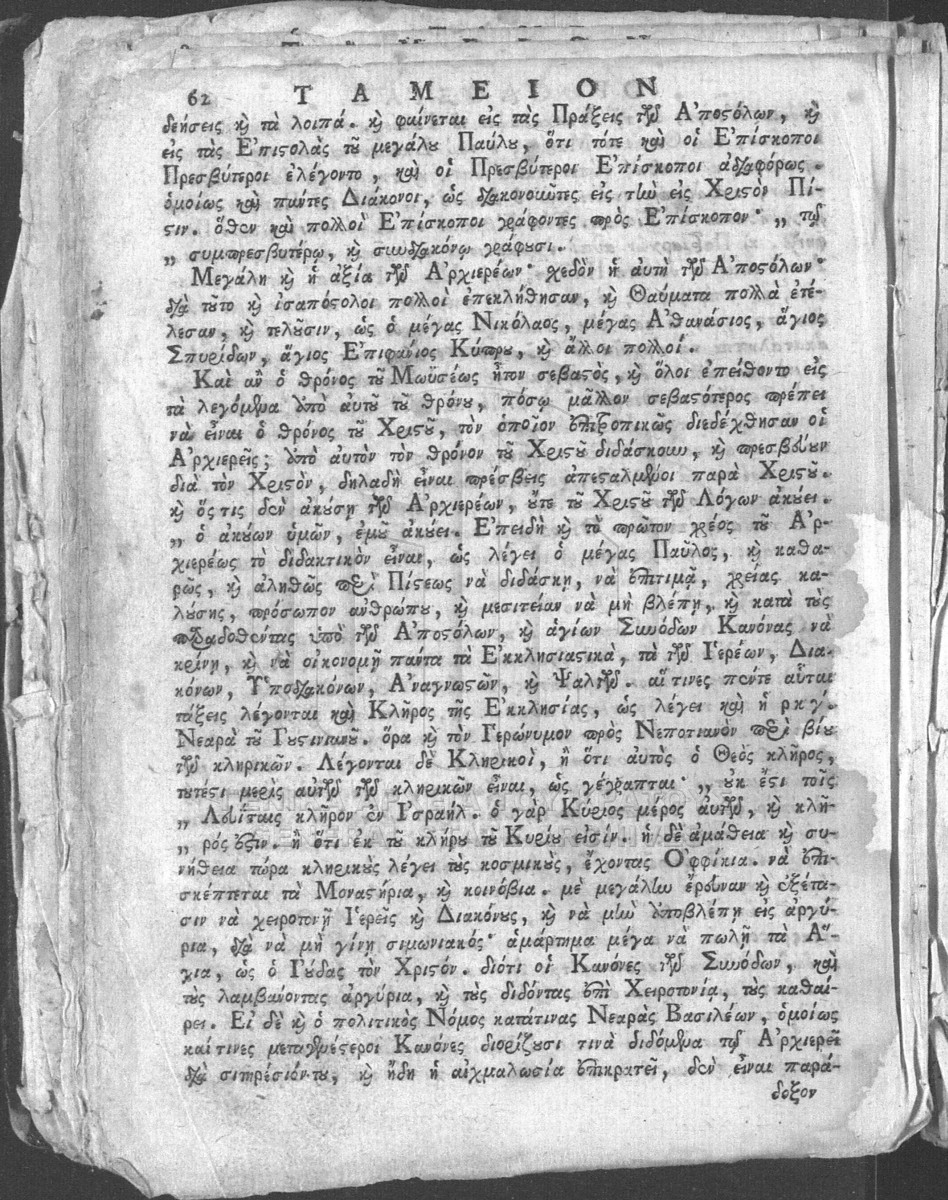 62 ΤΑΜΕΙΟΝ
δεήσεις καὶ τὰ λοιπά. καὶ φαίνεται εἰς τὰς Πράξεις τῶν Ἀποστόλων, καὶ
εἰς τὰς Ἐπιστολὰς τοῦ μεγάλου Παύλου, ὅτι τότε καὶ οἱ Ἐπίσκοποι
Πρεσβύτεροι ἐλέγοντο, καὶ οἱ Πρεσβύτεροι Ἐπίσκοποι ἀδιαφόρως.
ὁμοίως καὶ πάντες Διάκονοι, ὡς διακονοῦντες εἰς τὴν εἰς Χριστὸν Πί-
στιν. ὅθεν καὶ πολλοὶ Ἐπίσκοποι γράφοντες πρὸς Ἐπίσκοπον· „ τῷ
„ συμπρεσβυτέρῳ, καὶ συνδιακόνῳ γράφουσι.
Μεγάλη καὶ ἡ ἀξία τῶν Ἀρχιερέων· σχεδὸν ἡ αὐτὴ τῶν Ἀποστόλων·
διὰ τοῦτο καὶ ἰσαπόστολοι πολλοὶ ἐπεκλήθησαν, καὶ Θαύματα πολλὰ ἐτέ-
λεσαν, καὶ τελοῦσιν, ὡς ὁ μέγας Νικόλαος, μέγας Ἀθανάσιος, ἅγιος
Σπυρίδων, ἅγιος Ἐπιφάνιος Κύπρου, καὶ ἄλλοι πολλοί.
Καὶ ἂν ὁ θρόνος τοῦ Μωϋσέως ἦτον σεβαστὸς, καὶ ὅλοι ἐπείθοντο εἰς
τὰ λεγόμενα ὑπὸ αὐτοῦ τοῦ θρόνου, πόσῳ μᾶλλον σεβαστότερος πρέπει
νὰ εἶναι ὁ θρόνος τοῦ Χριστοῦ, τὸν ὁποῖον ἐπιτροπικῶς διεδέχθησαν οἱ
Ἀρχιερεῖς; ὑπὸ αὐτὸν τὸν θρόνον τοῦ Χριστοῦ διδάσκουν, καὶ πρεσβεύουν
διὰ τὸν Χριστὸν, δηλαδὴ εἶναι πρέσβεις ἀπεσταλμένοι παρὰ Χριστοῦ.
καὶ ὅστις δὲν ἀκούσῃ τῶν Ἀρχιερέων, οὔτε τοῦ Χριστοῦ τῶν Λόγων ἀκούει.
„ ὁ ἀκούων ὑμῶν, ἐμοῦ ἀκούει. Ἐπειδὴ καὶ τὸ πρῶτον χρέος τοῦ Ἀρ-
χιερέως τὸ διδακτικὸν εἶναι, ὡς λέγει ὁ μέγας Παῦλος, καὶ καθα-
ρῶς, καὶ ἀληθῶς περὶ Πίστεως νὰ διδάσκῃ, νὰ ἐπιτιμᾷ, χρείας κα-
λούσης, πρόσωπον ἀνθρώπου, καὶ μεσιτείαν νὰ μὴ βλέπῃ, καὶ κατὰ τοὺς
παραδοθέντας ὑπὸ τῶν Ἀποστόλων, καὶ ἁγίων Συνόδων Κανόνας νὰ
κρίνῃ, καὶ νὰ οἰκονομῇ πάντα τὰ Ἐκκλησιαστικὰ, τὰ τῶν Ἱερέων, Δια-
κόνων, Ὑποδιακόνων, Ἀναγνωστῶν, καὶ Ψαλτῶν. αἵ τινες πέντε αὗται
τάξεις λέγονται καὶ Κλῆρος τῆς Ἐκκλησίας, ὡς λέγει καὶ ἡ ρκγ΄.
Νεαρὰ τοῦ Ἰουστινιανοῦ. ὅρα καὶ τὸν Ἱερώνυμον πρὸς Νεποτιανὸν περὶ βίου
τῶν κληρικῶν. Λέγονται δὲ Κληρικοὶ, ἢ ὅτι αὐτὸς ὁ Θεὸς κλῆρος,
τουτέστι μερὶς αὐτῶν τῶν κληρικῶν εἶναι, ὡς γέγραπται· „ οὐκ ἔστι τοῖς
„ Λευΐταις κλῆρον ἐν Ἰσραήλ. ὁ γὰρ Κύριος μέρος αὐτῶν, καὶ κλῆ-
„ ρός ἐστιν. ἢ ὅτι ἐκ τοῦ κλήρου τοῦ Κυρίου εἰσίν. ἡ δὲ ἀμάθεια καὶ συ-
νήθεια τώρα κληρικοὺς λέγει τοὺς κοσμικοὺς, ἔχοντας Ὀφφίκια. νὰ ἐπι-
σκέπτεται τὰ Μοναστήρια, καὶ κοινόβια. μὲ μεγάλην ἔρευναν καὶ ἐξέτα-
σιν νὰ χειροτονῇ Ἱερεῖς καὶ Διακόνους, καὶ νὰ μὴν ὑποβλέπῃ εἰς ἀργύ-
ρια, διὰ νὰ μὴ γίνῃ σιμωνιακός· ἁμάρτημα μέγα νὰ πωλῇ τὰ Ἅ-
για, ὡς ὁ Ἰούδας τὸν Χριστόν. διότι οἱ Κανόνες τῶν Συνόδων, καὶ
τοὺς λαμβάνοντας ἀργύρια, καὶ τοὺς διδόντας ἐπὶ Χειροτονίᾳ, τοὺς καθαί-
ρει. Εἰ δὲ καὶ ὁ πολιτικὸς Νόμος κατάτινας Νεαρὰς Βασιλέων, ὁμοίως
καί τινες μεταγενέστεροι Κανόνες διορίζουσι τινὰ διδόμενα τῷ Ἀρχιερεῖ
διὰ σιτηρέσιόν του, καὶ ἤδη ἡ αἰχμαλωσία ἐπικρατεῖ, δὲν εἶναι παρά-
δοξον